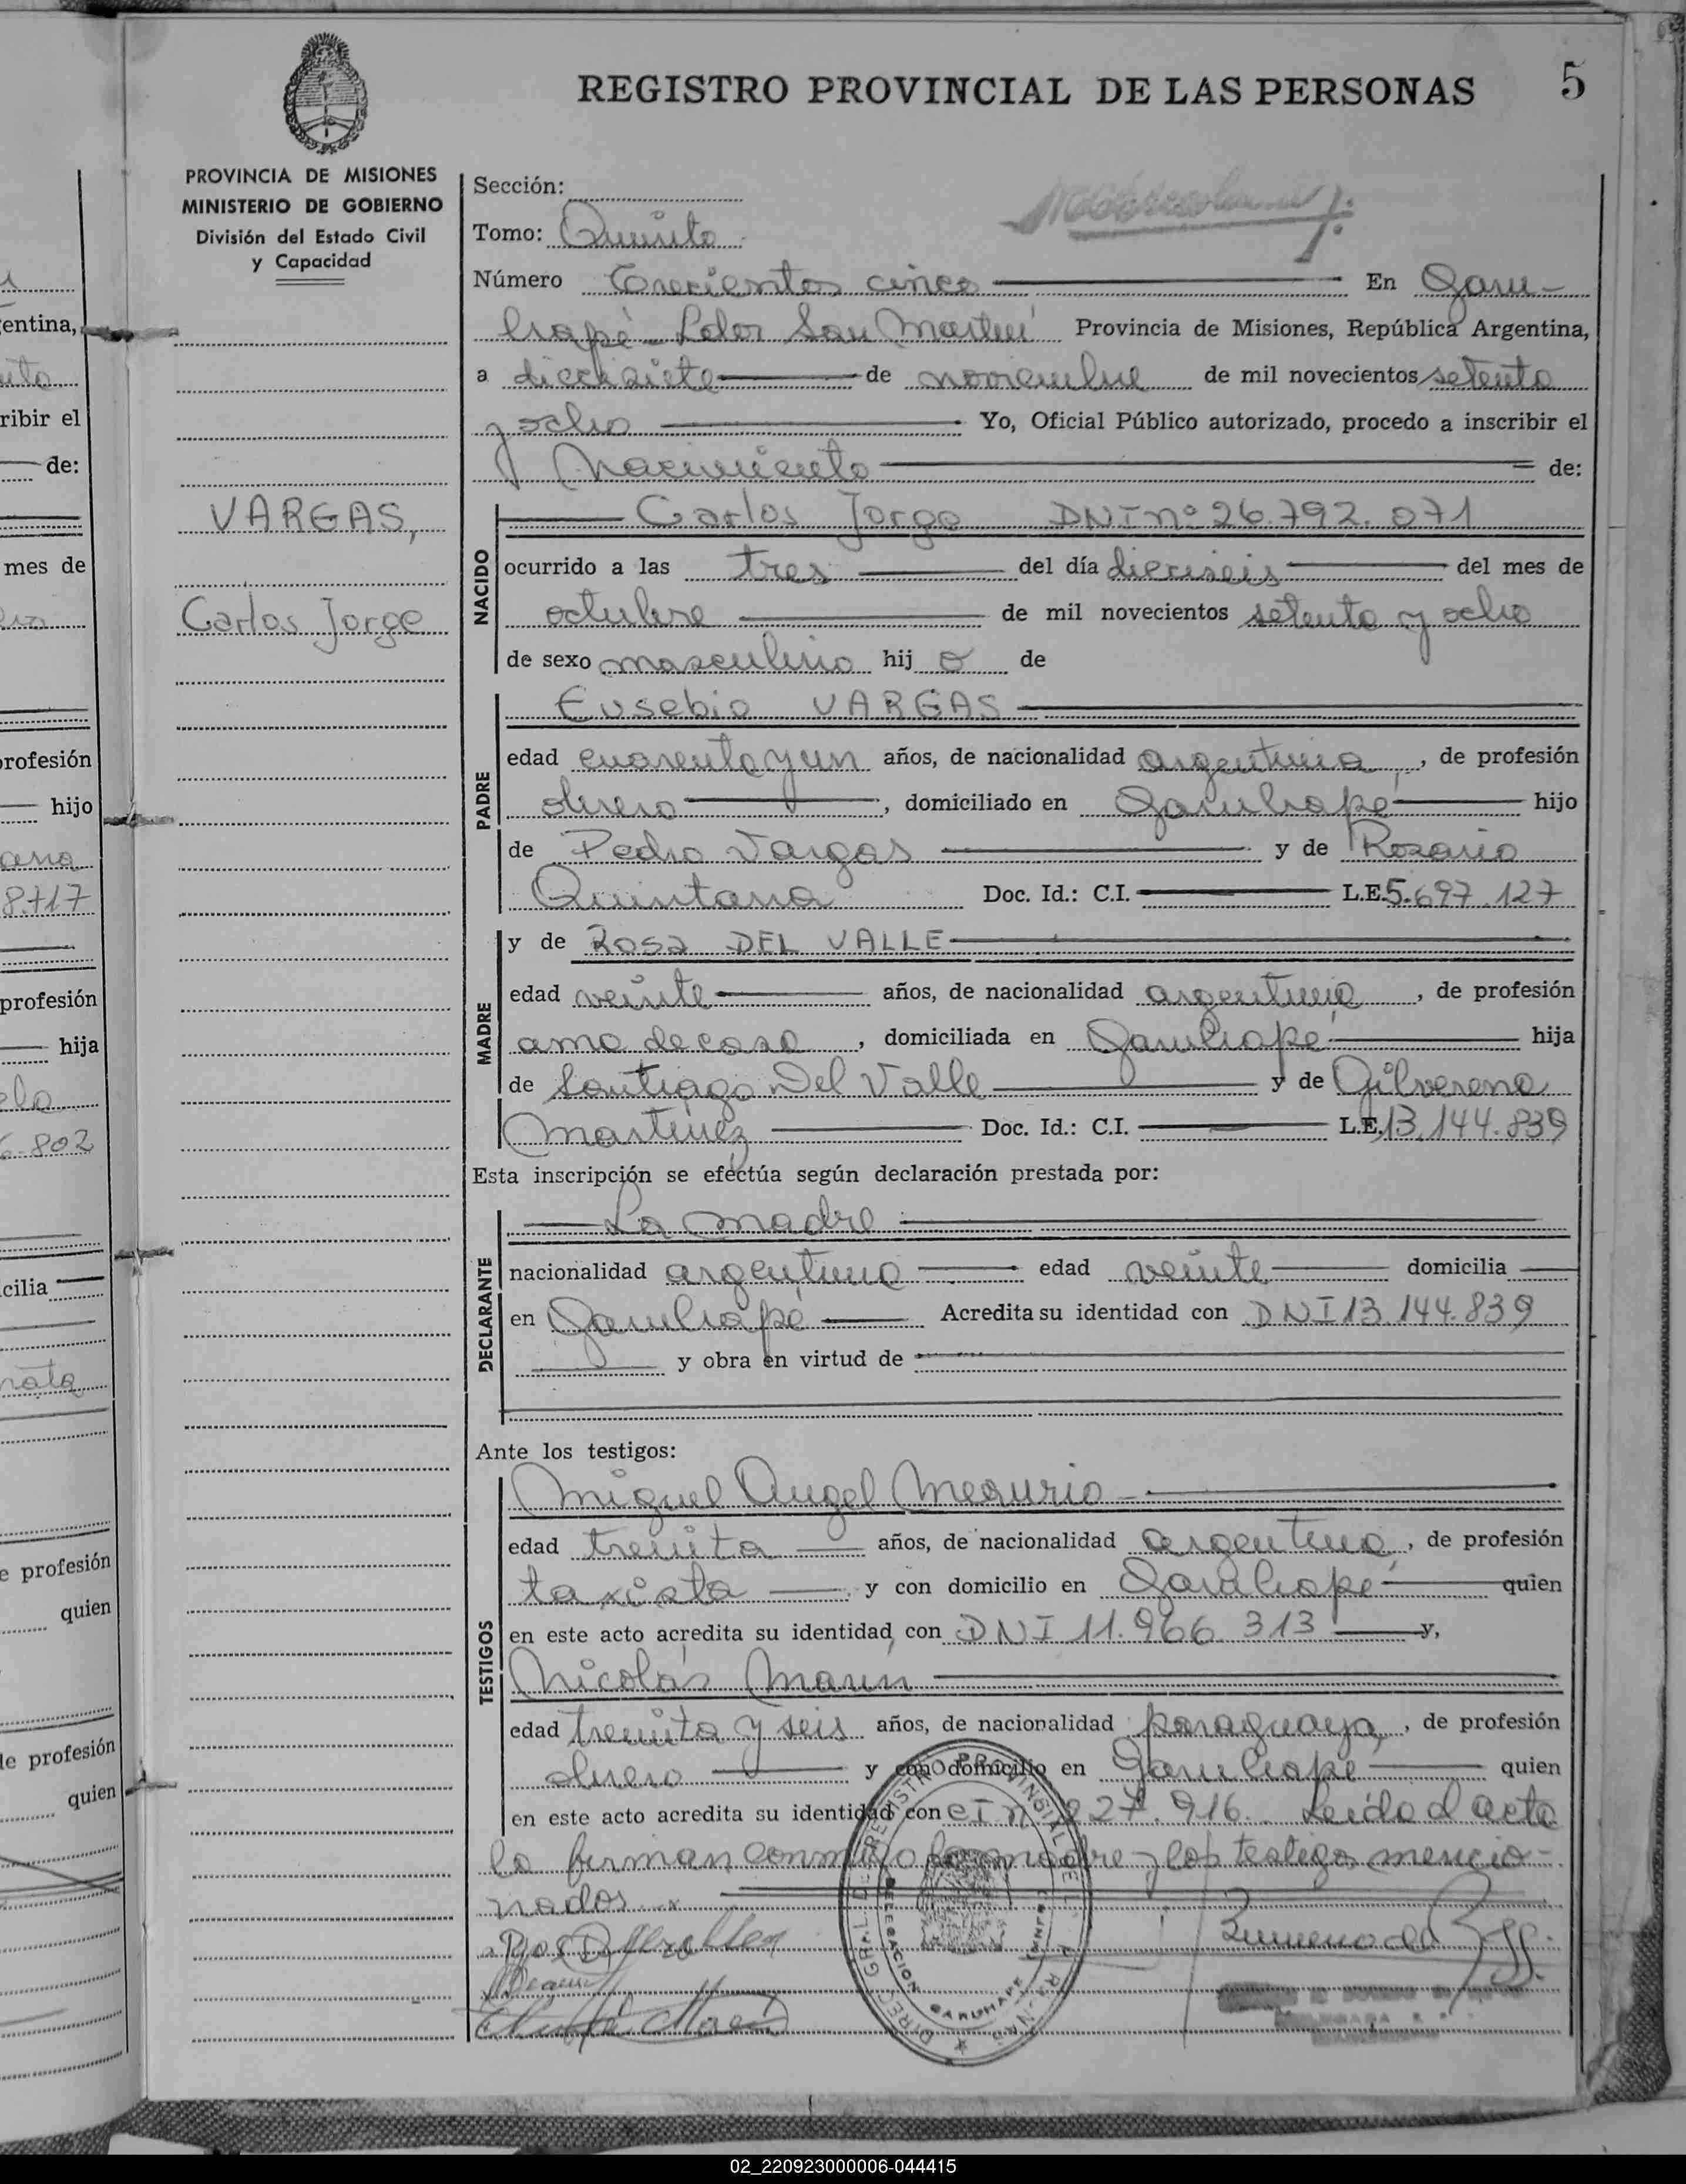 REGISTRO PROVINCIAL DE LAS PERSONAS 5
PROVINCIA DE MISIONES
MINISTERIO DE GOBIERNO
División del Estado Civil
y Capacidad
VARGAS,
Carlos Jorge
Sección:
Tomo: Quinto
Número Trecientos cinco En Garu-
hapé - Ldor San Martín Provincia de Misiones, República Argentina,
a diecisiete de noviembre de mil novecientos setenta
y ocho Yo, Oficial Público autorizado, procedo a inscribir el
Nacimiento de:
NACIDO
Carlos Jorge DNI nº 26.792.071
ocurrido a las tres del día dieciseis del mes de
octubre de mil novecientos setenta y ocho
de sexo masculino hij o de
PADRE
Eusebio VARGAS
edad cuarenta y un años, de nacionalidad argentina, de profesión
obrero, domiciliado en Garuhapé hijo
de Pedro Vargas y de Rosario
Quintana Doc. Id.: C.I. L.E. 5.697.127
MADRE
y de Rosa DEL VALLE
edad veinte años, de nacionalidad argentina, de profesión
ama de casa, domiciliada en Garuhapé hija
de Santiago Del Valle y de Gilverena
Martínez Doc. Id.: C.I. L.E. 13.144.839
Esta inscripción se efectúa según declaración prestada por:
DECLARANTE
La madre
nacionalidad argentina edad veinte domicilia
en Garuhapé Acredita su identidad con DNI 13.144.839
y obra en virtud de
Ante los testigos:
TESTIGOS
Miguel Angel
edad treinta años, de nacionalidad argentina, de profesión
taxista y con domicilio en Garuhapé quien
en este acto acredita su identidad con DNI 11.966.313 y,
Nicolás
edad treinta y seis años, de nacionalidad paraguaya, de profesión
obrero y con domicilio en Garuhapé quien
en este acto acredita su identidad con CI nº 827.916. Leída el acta
la firman conmigo la madre y los testigos mencio-
nados.
DELEGACION GARUHAPE
02_220923000006-044415